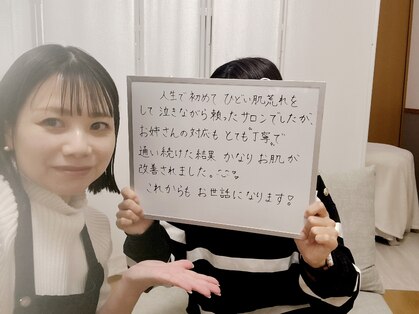 人生で初めて ひどい肌荒れを
して泣きながら頼ったサロンでしたが、
お姉さんの対応も とても丁寧で
通い続けた結果 かなり お肌が
改善されました。
これからも お世話になります!